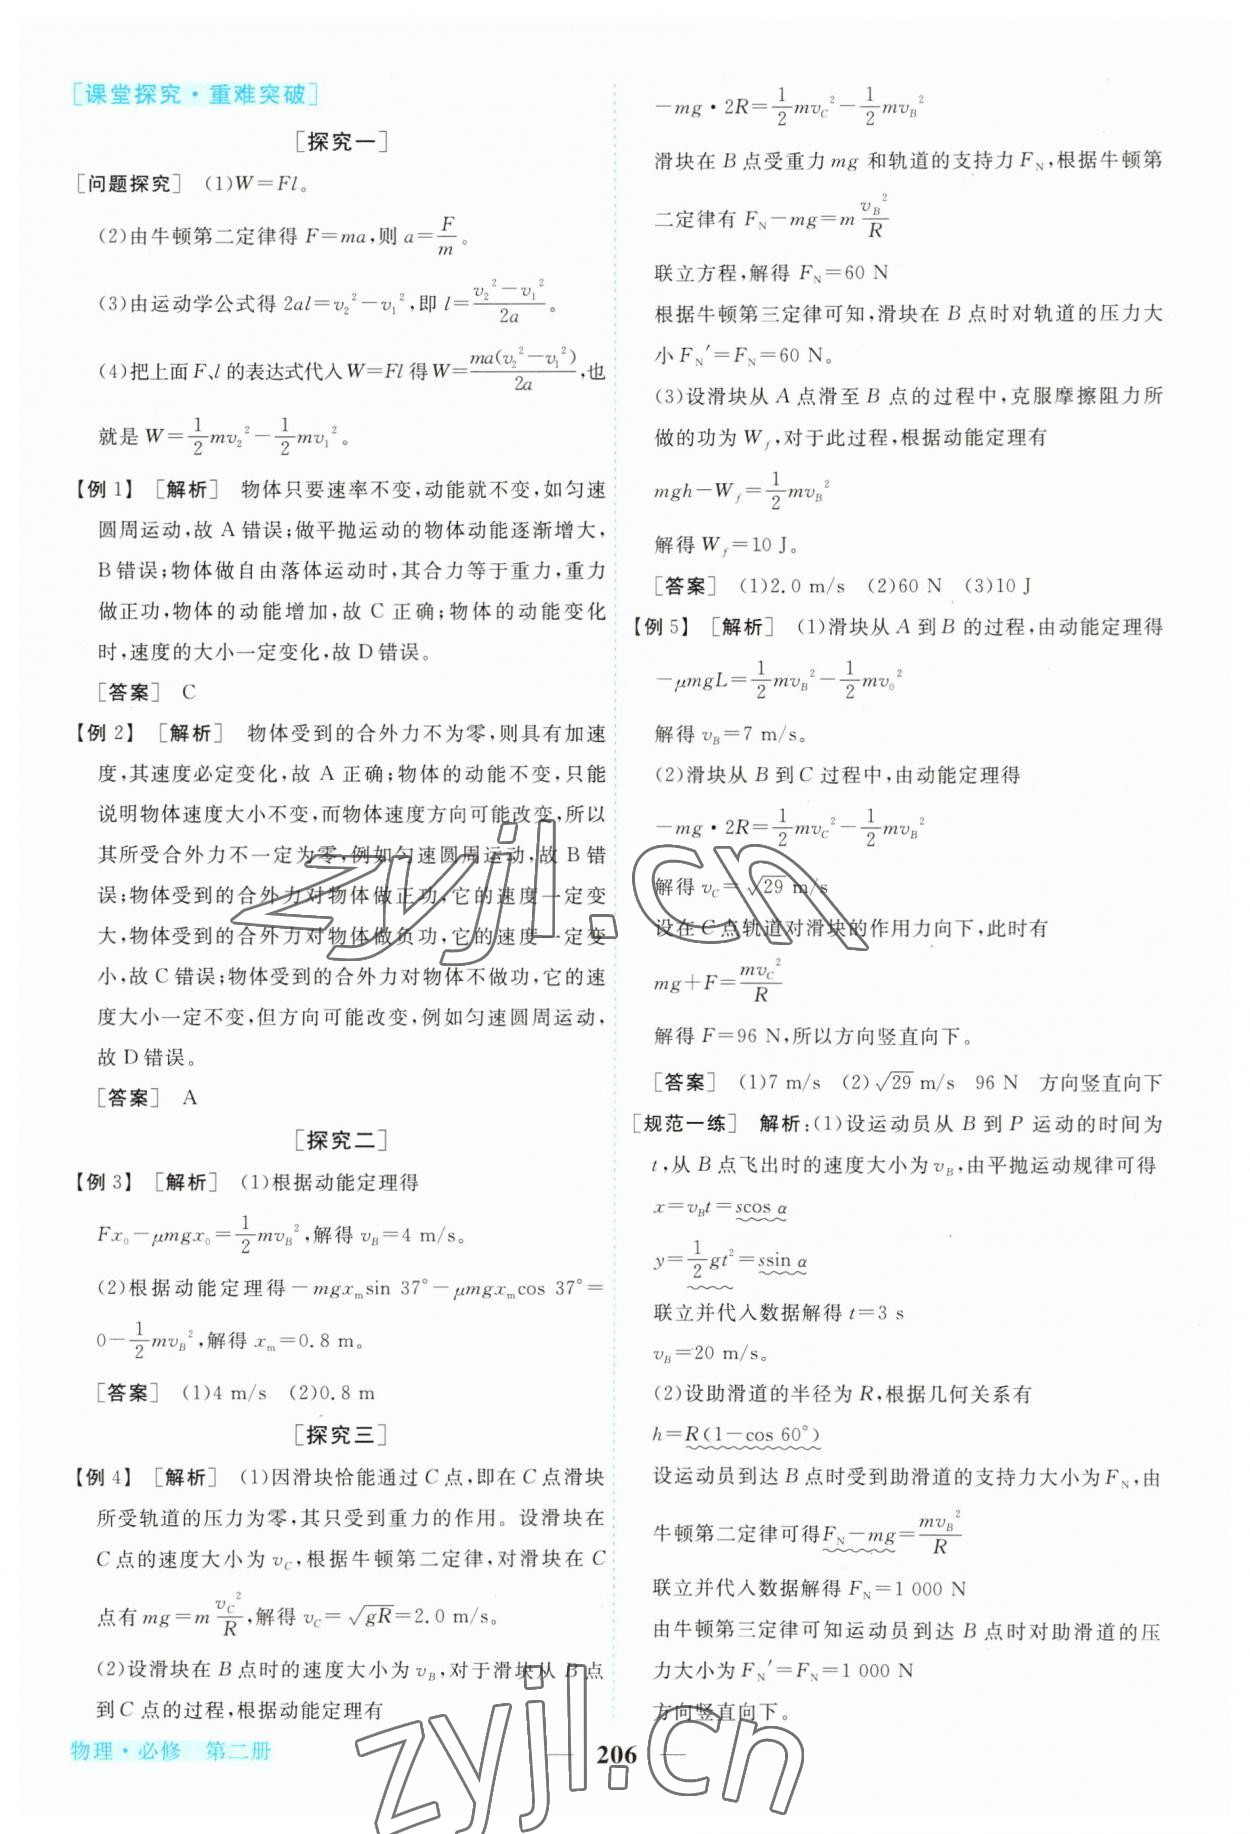 [课堂探究·重难突破]
[探究一]
[问题探究] (1)W=Fl。
(2)由牛顿第二定律得 F=ma,则 a=F/m。
(3)由运动学公式得 2al=v₂²-v₁²,即 l=(v₂²-v₁²)/2a。
(4)把上面 F、l 的表达式代入 W=Fl 得 W=ma(v₂²-v₁²)/2a,也
就是 W=1/2mv₂²-1/2mv₁²。
【例1】 [解析] 物体只要速率不变,动能就不变,如匀速
圆周运动,故 A 错误;做平抛运动的物体动能逐渐增大,
B 错误;物体做自由落体运动时,其合力等于重力,重力
做正功,物体的动能增加,故 C 正确;物体的动能变化
时,速度的大小一定变化,故 D 错误。
[答案] C
【例2】 [解析] 物体受到的合外力不为零,则具有加速
度,其速度必定变化,故 A 正确;物体的动能不变,只能
说明物体速度大小不变,而物体速度方向可能改变,所以
其所受合外力不一定为零,例如匀速圆周运动,故 B 错
误;物体受到的合外力对物体做正功,它的速度一定变
大,物体受到的合外力对物体做负功,它的速度一定变
小,故 C 错误;物体受到的合外力对物体不做功,它的速
度大小一定不变,但方向可能改变,例如匀速圆周运动,
故 D 错误。
[答案] A
[探究二]
【例3】 [解析] (1)根据动能定理得
Fx₀-μmgx₀=1/2mv_B²,解得 v_B=4 m/s。
(2)根据动能定理得-mgx_m sin 37°-μmgx_m cos 37°=
0-1/2mv_B²,解得 x_m=0.8 m。
[答案] (1)4 m/s (2)0.8 m
[探究三]
【例4】 [解析] (1)因滑块恰能通过 C 点,即在 C 点滑块
所受轨道的压力为零,其只受到重力的作用。设滑块在
C 点的速度大小为 v_C,根据牛顿第二定律,对滑块在 C
点有 mg=m v_C²/R,解得 v_C=√gR=2.0 m/s。
(2)设滑块在 B 点时的速度大小为 v_B,对于滑块从 B 点
到 C 点的过程,根据动能定理有
-mg·2R=1/2mv_C²-1/2mv_B²
滑块在 B 点受重力 mg 和轨道的支持力 F_N,根据牛顿第
二定律有 F_N-mg=m v_B²/R
联立方程,解得 F_N=60 N
根据牛顿第三定律可知,滑块在 B 点时对轨道的压力大
小 F_N′=F_N=60 N。
(3)设滑块从 A 点滑至 B 点的过程中,克服摩擦阻力所
做的功为 W_f,对于此过程,根据动能定理有
mgh-W_f=1/2mv_B²
解得 W_f=10 J。
[答案] (1)2.0 m/s (2)60 N (3)10 J
【例5】 [解析] (1)滑块从 A 到 B 的过程,由动能定理得
-μmgL=1/2mv_B²-1/2mv₀²
解得 v_B=7 m/s。
(2)滑块从 B 到 C 过程中,由动能定理得
-mg·2R=1/2mv_C²-1/2mv_B²
解得 v_C=√29 m/s
设在 C 点轨道对滑块的作用力向下,此时有
mg+F=mv_C²/R
解得 F=96 N,所以方向竖直向下。
[答案] (1)7 m/s (2)√29 m/s 96 N 方向竖直向下
[规范一练] 解析:(1)设运动员从 B 到 P 运动的时间为
t,从 B 点飞出时的速度大小为 v_B,由平抛运动规律可得
x=v_Bt=scos α
y=1/2gt²=ssin α
联立并代入数据解得 t=3 s
v_B=20 m/s。
(2)设助滑道的半径为 R,根据几何关系有
h=R(1-cos 60°)
设运动员到达 B 点时受到助滑道的支持力大小为 F_N,由
牛顿第二定律可得 F_N-mg=mv_B²/R
联立并代入数据解得 F_N=1 000 N
由牛顿第三定律可知运动员到达 B 点时对助滑道的压
力大小为 F_N′=F_N=1 000 N
方向竖直向下。
物理·必修 第二册
206
zyjl.cn
zyjl.cn